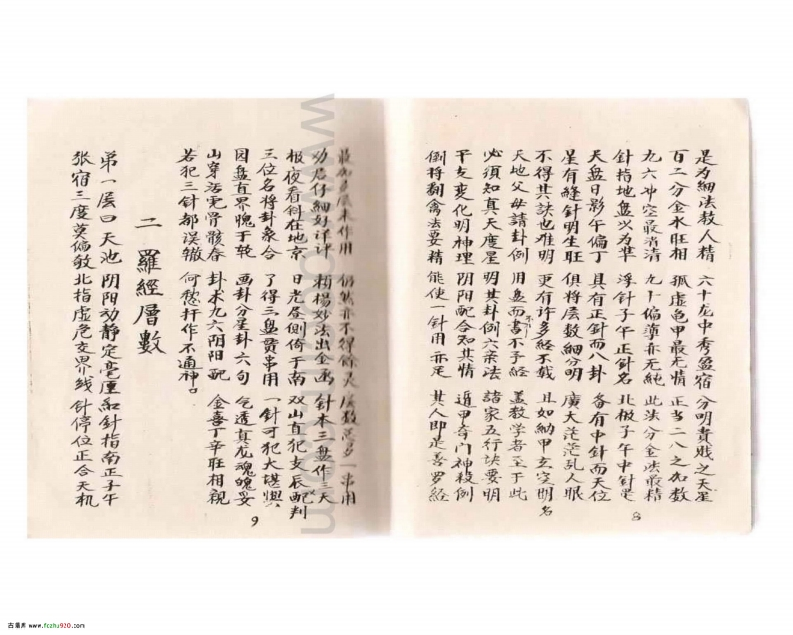 是为細法教人精 六十龙中秀盈宿 分明貴贱之天星
百二分金水旺相 孤虚龟甲最无情 正当二八之加数
九六冲空最清清 九十偏薄亦无純 此法分金法最精
針指地盘义为準 浮針子午正針名 北极子午中針是
天盘日影午偏丁 具有正針而八卦 备有中針而天位
星有縫針明生旺 俱将层数細分明 廣大茫茫乱人眼
不得其訣也难明 更有许多经不载 且如納甲玄空明名
天地父母請卦例 用盘而書不予经 盖数学者至于此
必須知真天度星 明其卦例六条法 諸家五行訣要明
干支变化明神理 阴阳配合知其情 遁甲奇门神殺例
倒将翻禽法要精 能使一針用亦足 其人即是善罗经
8
最如多层未作用 仍然亦不得餘灵 层数忌多一串用
劝君仔細好详评 賴楊妙法出金函 針本三盘作三天
根夜看斜在地京 日光昼側倚于南 双山直犯支辰配判
三位名将卦象合 了得三盘貫串用 一針可犯大堪輿
因盘百界愧于转 画卦分星卦六句 乞透真龙魂魄妥
山穿活電骨骸春 卦术九六阴阳配 金喜丁辛旺相親
若犯三針都误辙 何愁扦作不通神。
二 羅經層數
弟一层曰天池 阴阳动静定毫厘 紅針指南正子午
张宿三度莫偏敧 北指虚危交界线 針停位正合天机
9
古易库 www.fczhu920.com